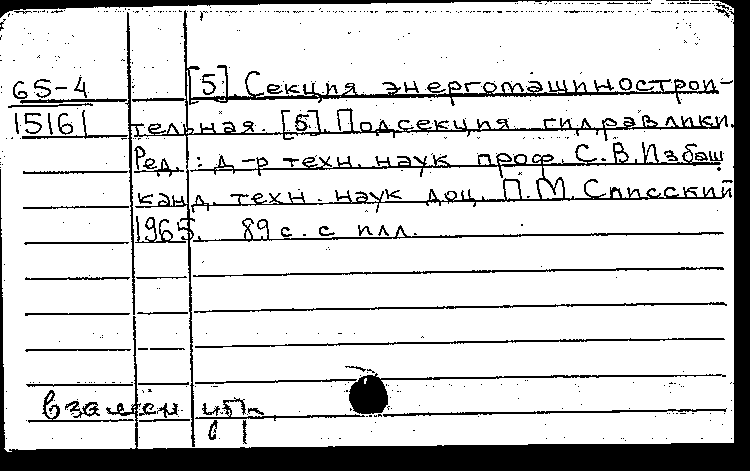 65-4 [5]. Секция энергомашинострои-
15161 тельная. [5]. Подсекция гидравлики.
Ред.: д-р техн. наук проф. С.В.Избаш
канд. техн. наук доц. П.М.Слисский
1965. 89 с. с илл.
взамен